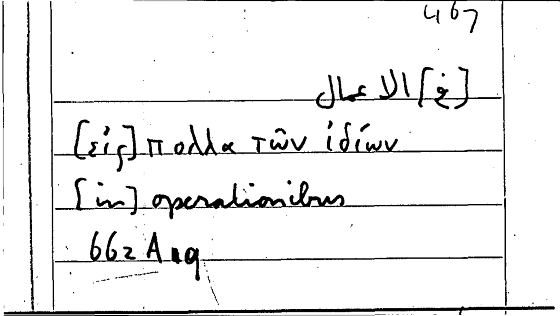 467
[في] الاعمال
[εἰς] πολλα τῶν ἰδίων
[in] operationibus
662 A 19